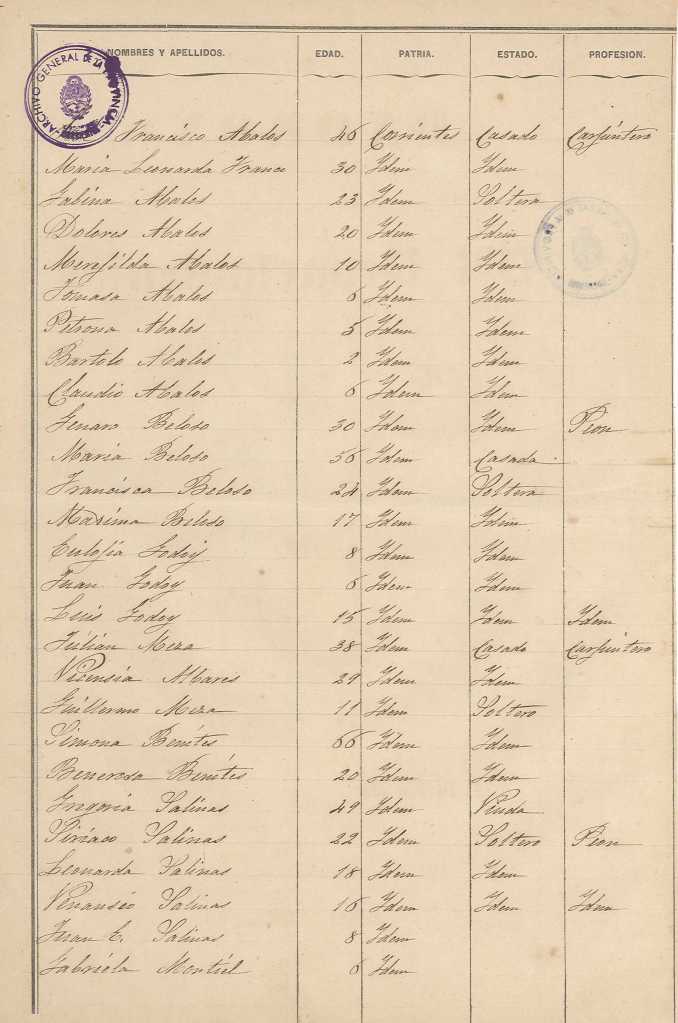 NOMBRES Y APELLIDOS. EDAD. PATRIA. ESTADO. PROFESION.
ARCHIVO GENERAL DE LA PROVINCIA
Francisco Abalos 46 Corrientes Casado Carpintero
Maria Leonarda Franco 30 Idem Idem
Sabina Abalos 23 Idem Soltera
Dolores Abalos 20 Idem Idem
Merejilda Abalos 10 Idem Idem
Tomasa Abalos 6 Idem Idem
Petrona Abalos 5 Idem Idem
Bartolo Abalos 2 Idem Idem
Claudio Abalos 6 Idem Idem
Genaro Beloso 30 Idem Idem Peon
Maria Beloso 56 Idem Casada
Francisca Beloso 24 Idem Soltera
Maxima Beloso 17 Idem Idem
Eulojia Godoy 8 Idem Idem
Juan Godoy 6 Idem Idem
Luis Godoy 15 Idem Idem Idem
Julián Meza 38 Idem Casado Carpintero
Vicensia Albares 29 Idem Idem
Guillermo Meza 11 Idem Soltero
Simona Benítes 66 Idem Idem
Beneroda Benítes 20 Idem Idem
Gregoria Salinas 49 Idem Viuda
Siriaco Salinas 22 Idem Soltero Peon
Leonarda Salinas 18 Idem Idem
Venansio Salinas 16 Idem Idem Idem
Juan E. Salinas 8 Idem
Gabriela Montiel 6 Idem